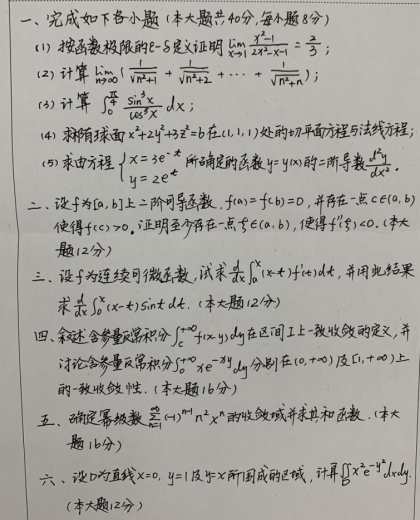 一、完成如下各小题(本大题共40分,每小题8分)
(1) 按函数极限的ε-δ定义证明 lim_{x→1} (x²-1)/(2x²-x-1) = 2/3;
(2) 计算 lim_{n→∞} (1/√(n²+1) + 1/√(n²+2) + ⋯ + 1/√(n²+n));
(3) 计算 ∫_0^{π/4} sin³x/cos³x dx;
(4) 求椭球面 x²+2y²+3z²=6 在(1,1,1)处的切平面方程与法线方程;
(5) 求由方程 { x=3e^{-t} y=2e^t 所确定的函数y=y(x)的二阶导数 d²y/dx².
二、设f为[a,b]上二阶可导函数, f(a)=f(b)=0, 并存在一点c∈(a,b)
使得f(c)>0。证明至少存在一点ξ∈(a,b), 使得f''(ξ)<0. (本大
题12分)
三、设f为连续可微函数, 试求 d/dx ∫_a^x (x-t)f'(t)dt, 并用此结果
求 d/dx ∫_0^x (x-t)sint dt. (本大题12分)
四、叙述含参量反常积分 ∫_c^{+∞} f(x,y)dy 在区间I上一致收敛的定义, 并
讨论含参量反常积分 ∫_0^{+∞} xe^{-xy}dy 分别在(0,+∞)及[1,+∞)上
的一致收敛性. (本大题16分)
五、确定幂级数 ∑_{n=1}^{∞} (-1)^{n-1} n² xⁿ 的收敛域并求其和函数. (本大
题16分)
六、设D为直线x=0, y=1及y=x所围成的区域, 计算 ∬_D x²e^{-y²}dxdy.
(本大题12分)